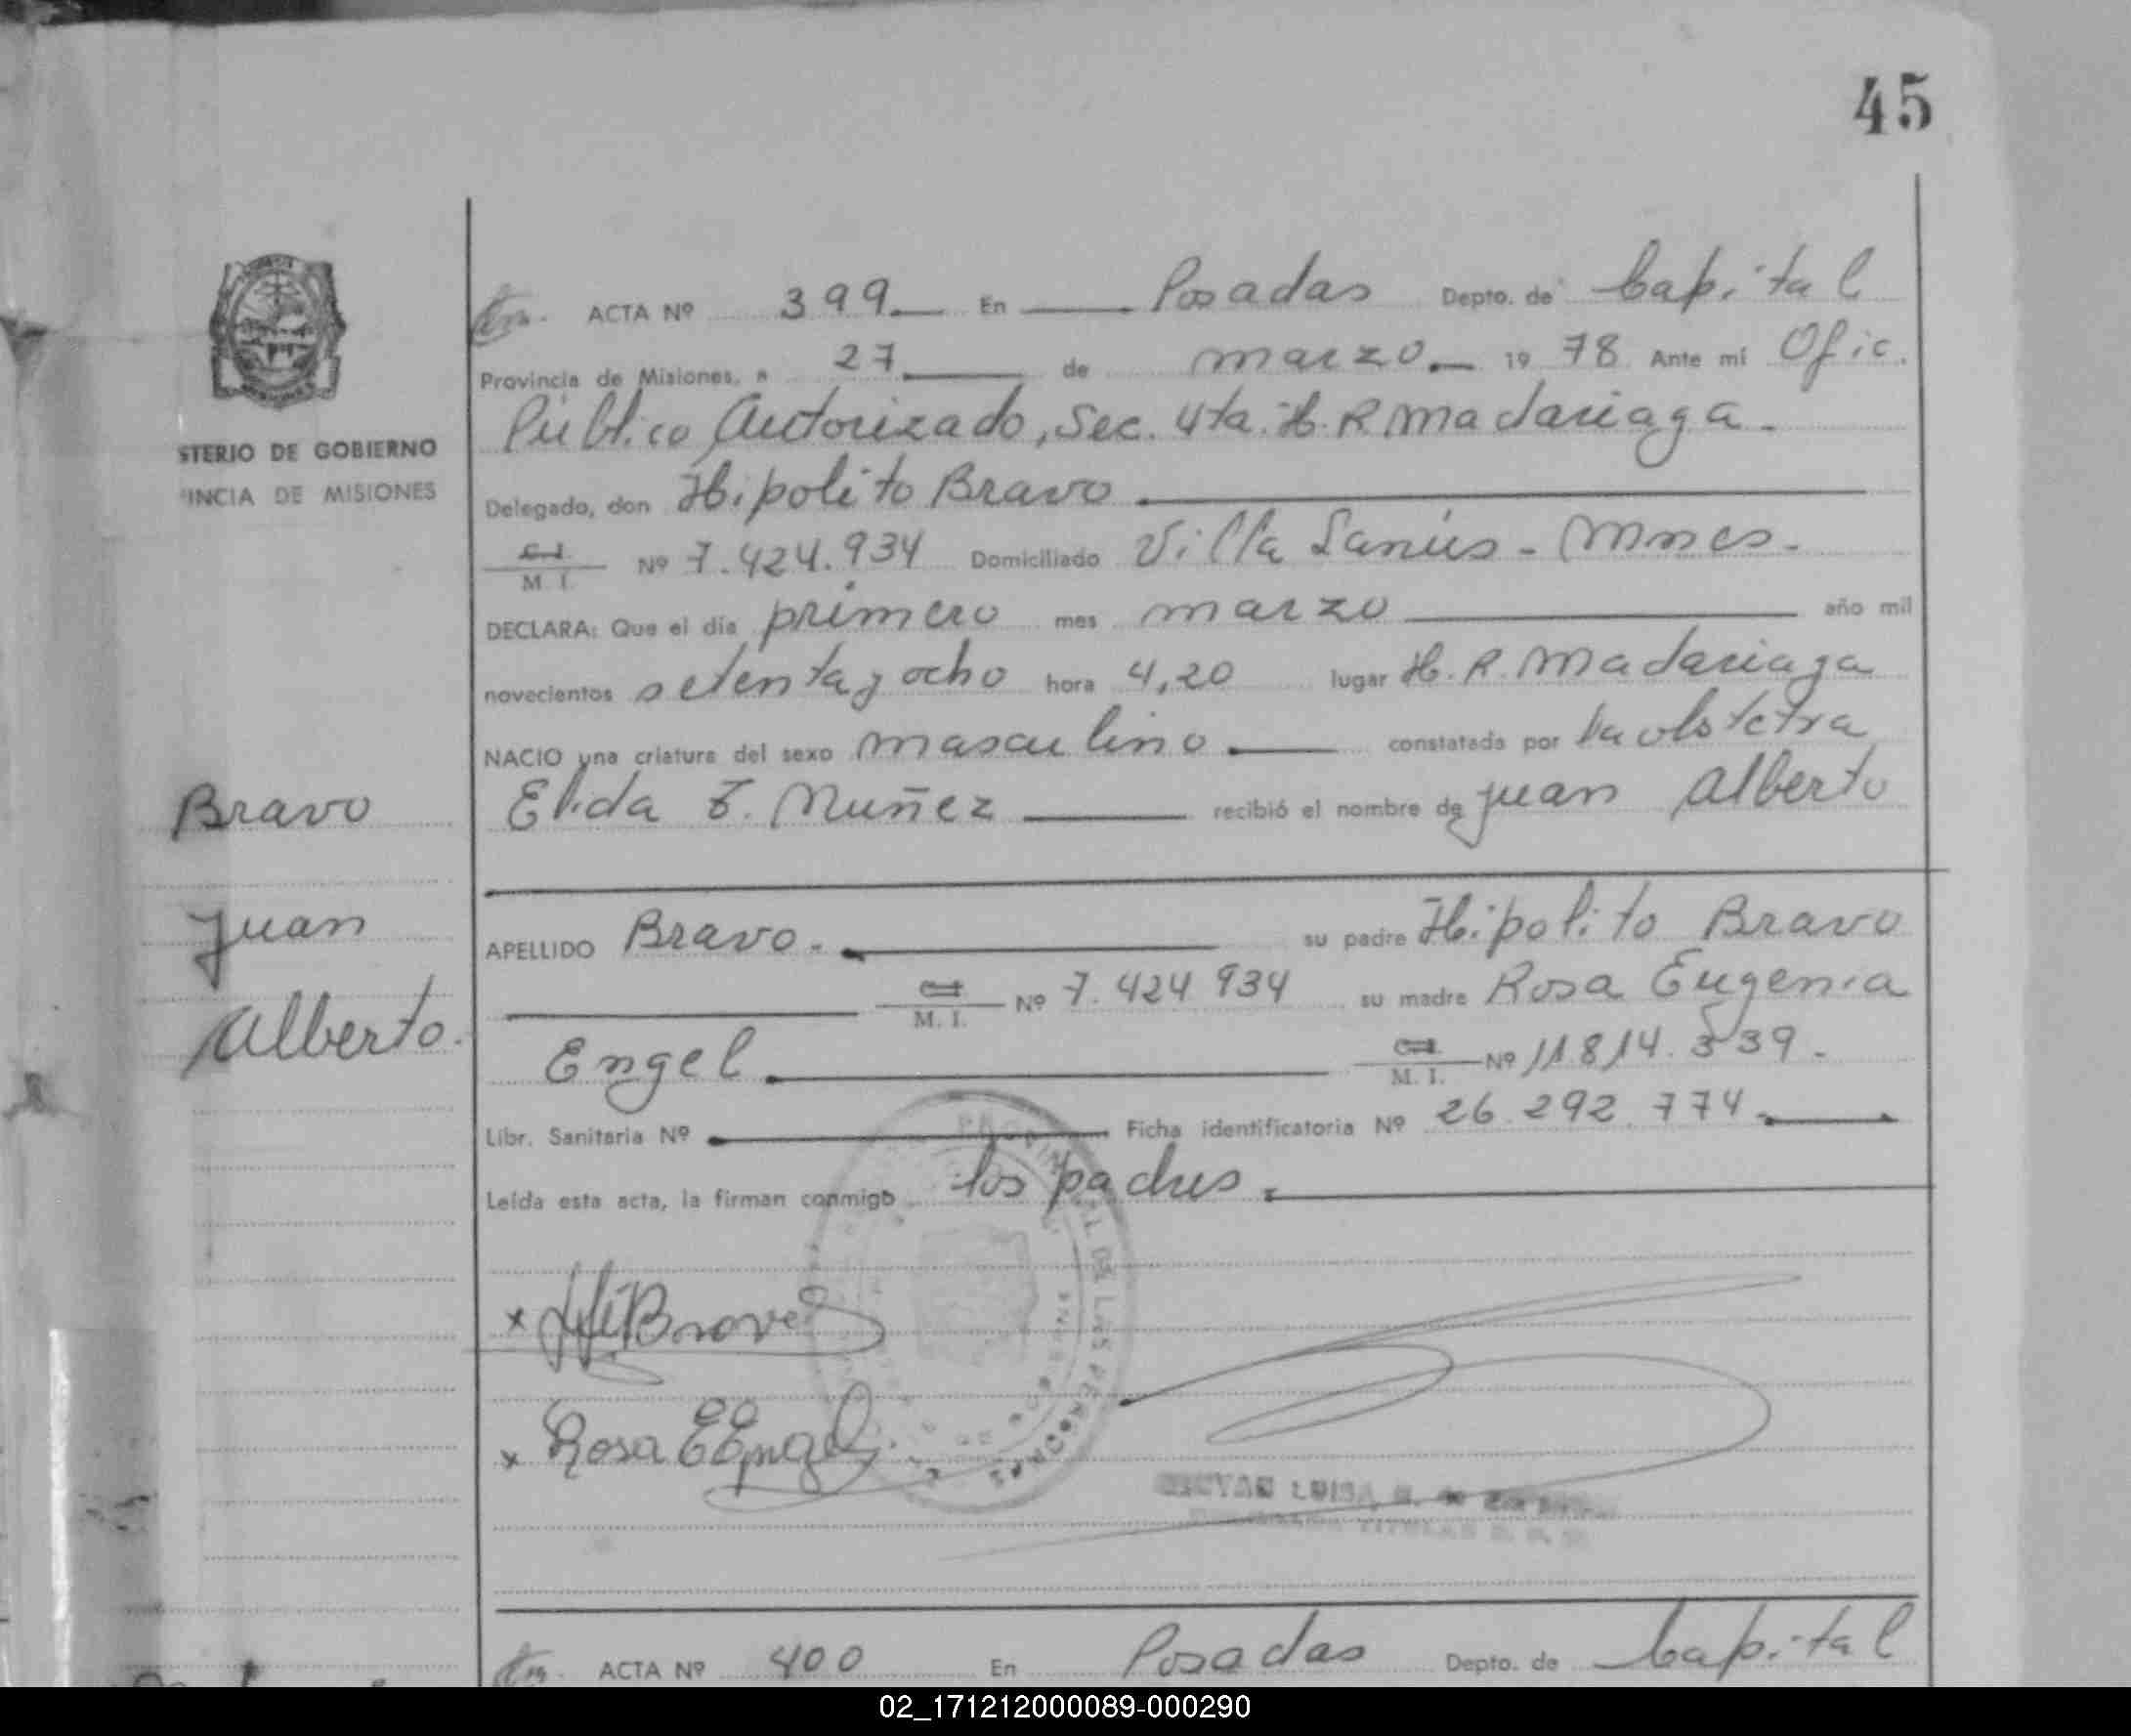 45
ACTA Nº 399 En Posadas Depto. de Capital
Provincia de Misiones, a 27 de marzo 19 78 Ante mí Ofic.
Público Autorizado, Sec. 4ta. H. R. Madariaga.
STERIO DE GOBIERNO
INCIA DE MISIONES
Delegado, don Hipolito Bravo
C.I. M. I. Nº 7.424.934 Domiciliado Villa Lanús - Mnes.
DECLARA: Que el día primero mes marzo año mil
novecientos setenta y ocho hora 4,20 lugar H. R. Madariaga
NACIO una criatura del sexo masculino constatada por la obstetra
Elida F. Muñez recibió el nombre de Juan Alberto
Bravo
Juan
Alberto.
APELLIDO Bravo.- su padre Hipolito Bravo
M. I. Nº 7.424 934 su madre Rosa Eugenia
Engel M. I. Nº 11814.339.-
Libr. Sanitaria Nº Ficha identificatoria Nº 26.292.774.
Leída esta acta, la firman conmigo los padres.
x Bravo
x Rosa E Engel
PROVINCIAL DE LAS PERSONAS
LUISA
TITULAR
ACTA Nº 400 En Posadas Depto. de Capital
02_171212000089-000290